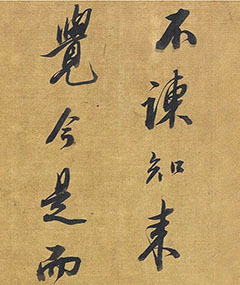 不諫知来
覺今是而